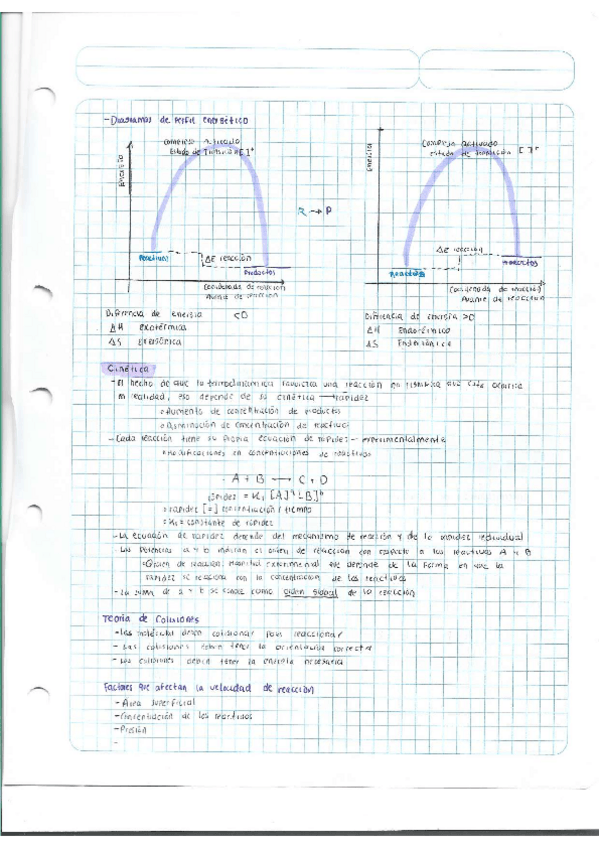 - Diagramas de perfil energético
Complejo activado
Estado de Transición [ ]‡
Energía
Reactivos
ΔE reacción
Productos
Coordenada de reacción
Avance de reacción
R → P
Complejo activado
Estado de transición [ ]‡
Energía
ΔE reacción
Productos
Reactivos
Coordenada de reacción
Avance de reacción
Diferencia de energía <0
ΔH exotérmica
ΔS
Diferencia de energía >0
ΔH Endotérmico
ΔS
Cinética
- El hecho de que la termodinámica favorezca una reacción no significa que esta ocurra
en realidad, eso depende de su cinética → rapidez
Aumento de concentración de productos
Disminución de concentración de reactivos
- Cada reacción tiene su propia ecuación de rapidez - experimentalmente
modificaciones en concentraciones de reactivos
A + B → C + D
rapidez = K₁ [A]ᵃ [B]ᵇ
rapidez [=] concentración / tiempo
K₁ = constante de rapidez
- La ecuación de rapidez depende del mecanismo de reacción y de la rapidez individual
- Las potencias a y b indican el orden de reacción con respecto a los reactivos A y B
Orden de reacción: magnitud experimental que depende de la forma en que la
rapidez se relaciona con la concentración de los reactivos
- La suma de a y b se conoce como orden global de la reacción
Teoría de Colisiones
- Las moléculas deben colisionar para reaccionar
- Las colisiones deben tener la orientación correcta
- Las colisiones deben tener la energía necesaria
Factores que afectan la velocidad de reacción
- Área superficial
- Concentración de los reactivos
- Presión
-